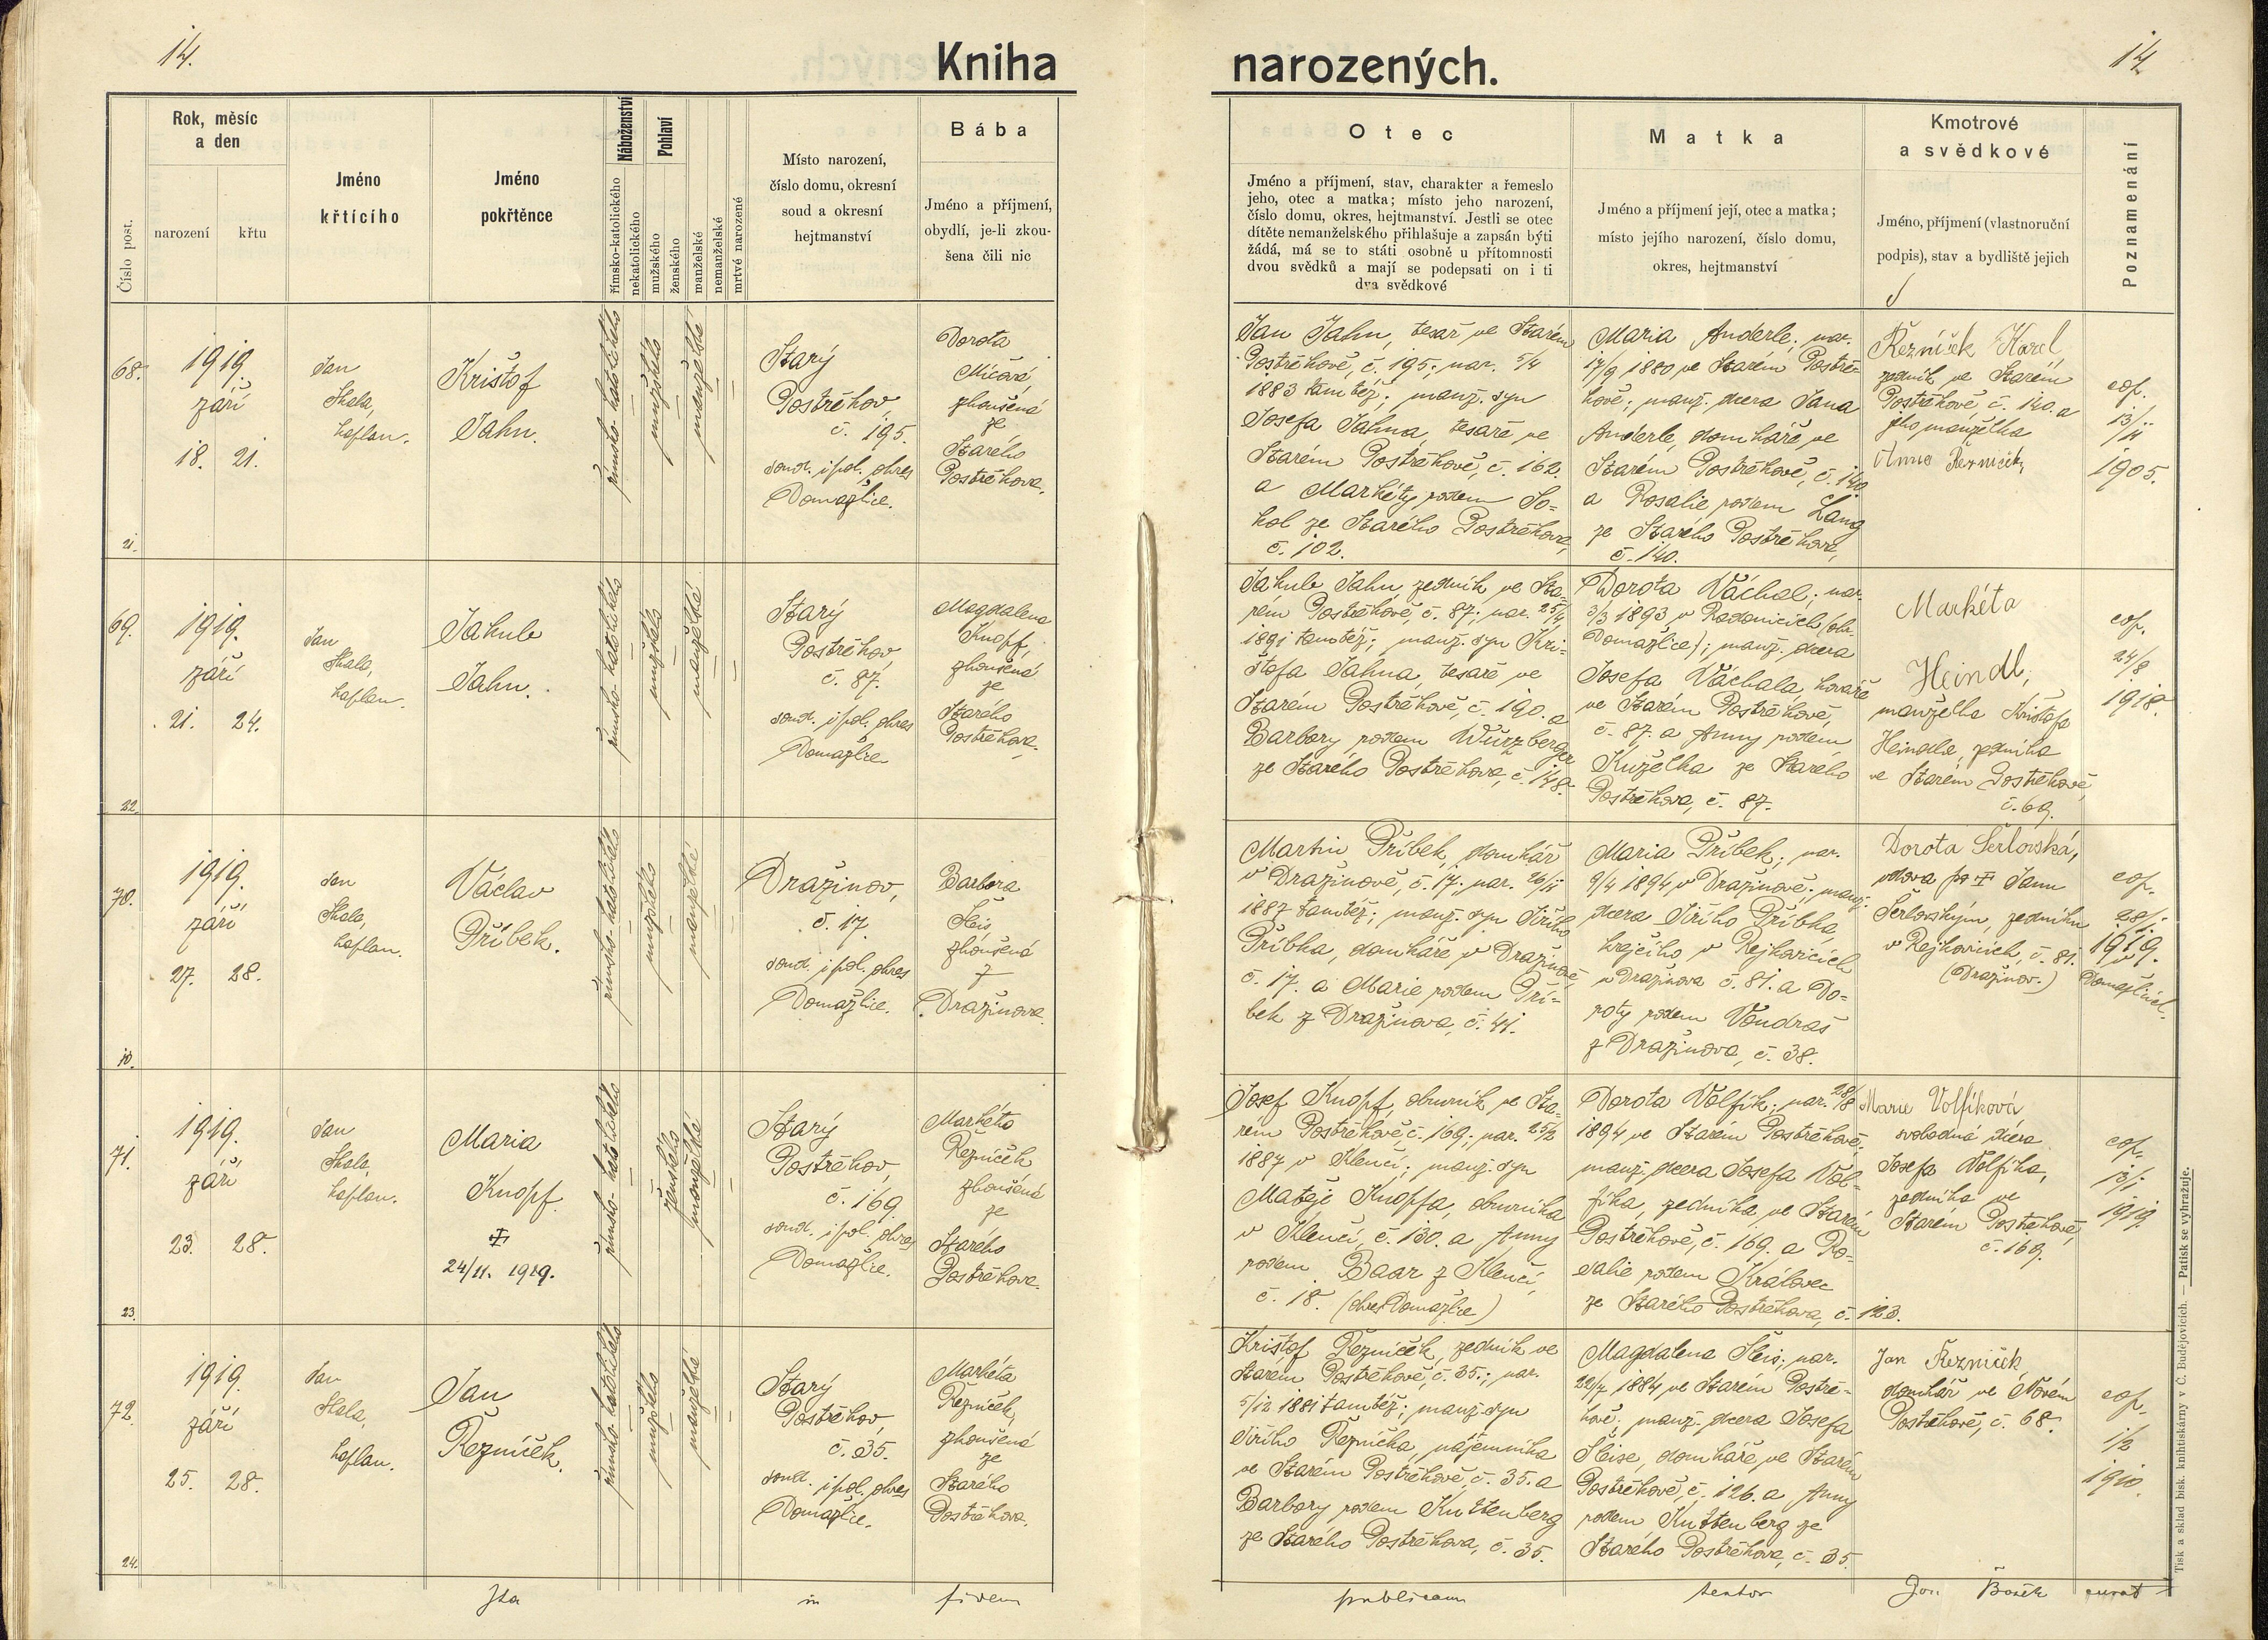 14.
Kniha
narozených.
14
Číslo post.
Rok, měsíc
a den
narození
křtu
Jméno
křtícího
Jméno
pokřtěnce
Náboženství
římsko-katolického
nekatolického
Pohlaví
mužského
ženského
manželské
nemanželské
mrtvé narozené
Místo narození,
číslo domu, okresní
soud a okresní
hejtmanství
Bába
Jméno a příjmení,
obydlí, je-li zkou-
šena čili nic
Otec
Jméno a příjmení, stav, charakter a řemeslo
jeho, otec a matka; místo jeho narození,
číslo domu, okres, hejtmanství. Jestli se otec
dítěte nemanželského přihlašuje a zapsán býti
žádá, má se to státi osobně u přítomnosti
dvou svědků a mají se podepsati on i ti
dva svědkové
Matka
Jméno a příjmení její, otec a matka;
místo jejího narození, číslo domu,
okres, hejtmanství
Kmotrové
a svědkové
Jméno, příjmení (vlastnoruční
podpis), stav a bydliště jejich
Poznamenání
68.
1919
září
18. 21.
21.
Jan
Skala,
kaplan.
Kristof
Jahn.
římsko-katolického
mužského
manželské
Starý
Postřekov,
č. 195.
soud. i pol. okres
Domažlice.
Dorota
Micová,
zkoušená
ze
Starého
Postřekova.
Jan Jahn, tesař ve Starém
Postřekově, č. 195; nar. 5/4
1883 tamtéž; manž. syn
Josefa Jahna, tesaře ve
Starém Postřekově, č. 162.
a Markéty rodem So-
kol ze Starého Postřekova,
č. 102.
Maria Anderle; nar.
17/9 1880 ve Starém Postře-
kově; manž. dcera Jana
Anderle, domkáře ve
Starém Postřekově, č. 140.
a Rosalie rodem Lang
ze Starého Postřekova,
č. 140.
Řezníček Karel,
zedník ve Starém
Postřekově, č. 140. a
jeho manželka
Anna Řezníček,
cop.
13/11
1905.
69.
1919.
září
21. 24.
22.
Jan
Skala,
kaplan.
Jakub
Jahn.
římsko-katolického
mužského
manželské
Starý
Postřekov
č. 87.
soud. i pol. okres
Domažlice
Magdalena
Knopf,
zkoušená
ze
Starého
Postřekova.
Jakub Jahn, zedník ve Sta-
rém Postřekově, č. 87; nar. 25/4
1891 tamtéž; manž. syn Kri-
štofa Jahna, tesaře ve
Starém Postřekově, č. 190. a
Barbory rodem Würzberger
ze Starého Postřekova, č. 148.
Dorota Váchal; nar.
3/3 1893 v Radonicích (okr.
Domažlice); manž. dcera
Josefa Váchala, kováře
ve Starém Postřekově,
č. 87. a Anny rodem
Kuželka ze Starého
Postřekova, č. 87.
Markéta
Heindl,
manželka Krištofa
Heindla, zedníka
ve Starém Postřekově,
č. 69.
cop.
24/8
1918.
70.
1919.
září
27. 28.
10.
Jan
Skala,
kaplan.
Václav
Příbek.
římsko-katolického
mužského
manželské
Dražinov,
č. 17.
soud. i pol. okres
Domažlice.
Barbora
Šleis
zkoušená
z
Dražinova.
Martin Příbek, domkář
v Dražinově, č. 17; nar. 26/11
1887 tamtéž; manž. syn Jiřího
Příbka, domkáře v Dražinově,
č. 17. a Marie rodem Pří-
bek z Dražinova, č. 41.
Maria Příbek; nar.
9/4 1894 v Dražinově; manž.
dcera Jiřího Příbka,
krejčího v Rejkovicích
u Dražinova č. 81. a Do-
roty rodem Vondraš
z Dražinova, č. 38.
Dorota Šerlovská,
vdova po Janu
Šerlovským, zedníku
v Rejkovicích, č. 81.
(Dražinov.)
cop.
28/1
1919.
v
Domažlicích.
71.
1919.
září
23. 28.
23.
Jan
Skala,
kaplan.
Maria
Knopf.
24/11. 1919.
římsko-katolického
ženského
manželské
Starý
Postřekov,
č. 169
soud. i pol. okres
Domažlice.
Markéta
Řezníček
zkoušená
ze
Starého
Postřekova.
Josef Knopf, obuvník ve Sta-
rém Postřekově, č. 169; nar. 25/2
1887 v Klenčí; manž. syn
Matěje Knopfa, obuvníka
v Klenčí, č. 130. a Anny
rodem Baar z Klenčí,
č. 18. (okres Domažlice)
Dorota Volfík; nar. 28/8
1894 ve Starém Postřekově,
manž. dcera Josefa Vol-
fíka, zedníka ve Starém
Postřekově, č. 169. a Ro-
salie rodem Královec
ze Starého Postřekova, č. 123.
Marie Volfíková
svobodná dcera
Josefa Volfíka,
zedníka ve
Starém Postřekově,
č. 169.
cop.
13/1
1919.
72.
1919.
září
25. 28.
24.
Jan
Skala,
kaplan.
Jan
Řezníček.
římsko-katolického
mužského
manželské
Starý
Postřekov,
č. 35.
soud. i pol. okres
Domažlice.
Markéta
Řezníček,
zkoušená
ze
Starého
Postřekova.
Krištof Řezníček, zedník ve
Starém Postřekově, č. 35.; nar.
5/12 1881 tamtéž; manž. syn
Jiřího Řezníčka, nájemníka
ve Starém Postřekově, č. 35. a
Barbory rodem Kuttenberg
ze Starého Postřekova, č. 35.
Magdalena Šleis; nar.
22/7 1884 ve Starém Postře-
kově; manž. dcera Josefa
Šleise, domkáře ve Starém
Postřekově, č. 126. a Anny
rodem Kuttenberg ze
Starého Postřekova, č. 35.
Jan Řezníček,
domkář ve Novém
Postřekově, č. 68.
cop.
1/2
1910.
Ita in fidem publicam testor Jan Bosák curat
Tisk a sklad bisk. knihtiskárny v Č. Budějovicích. — Patisk se vyhražuje.